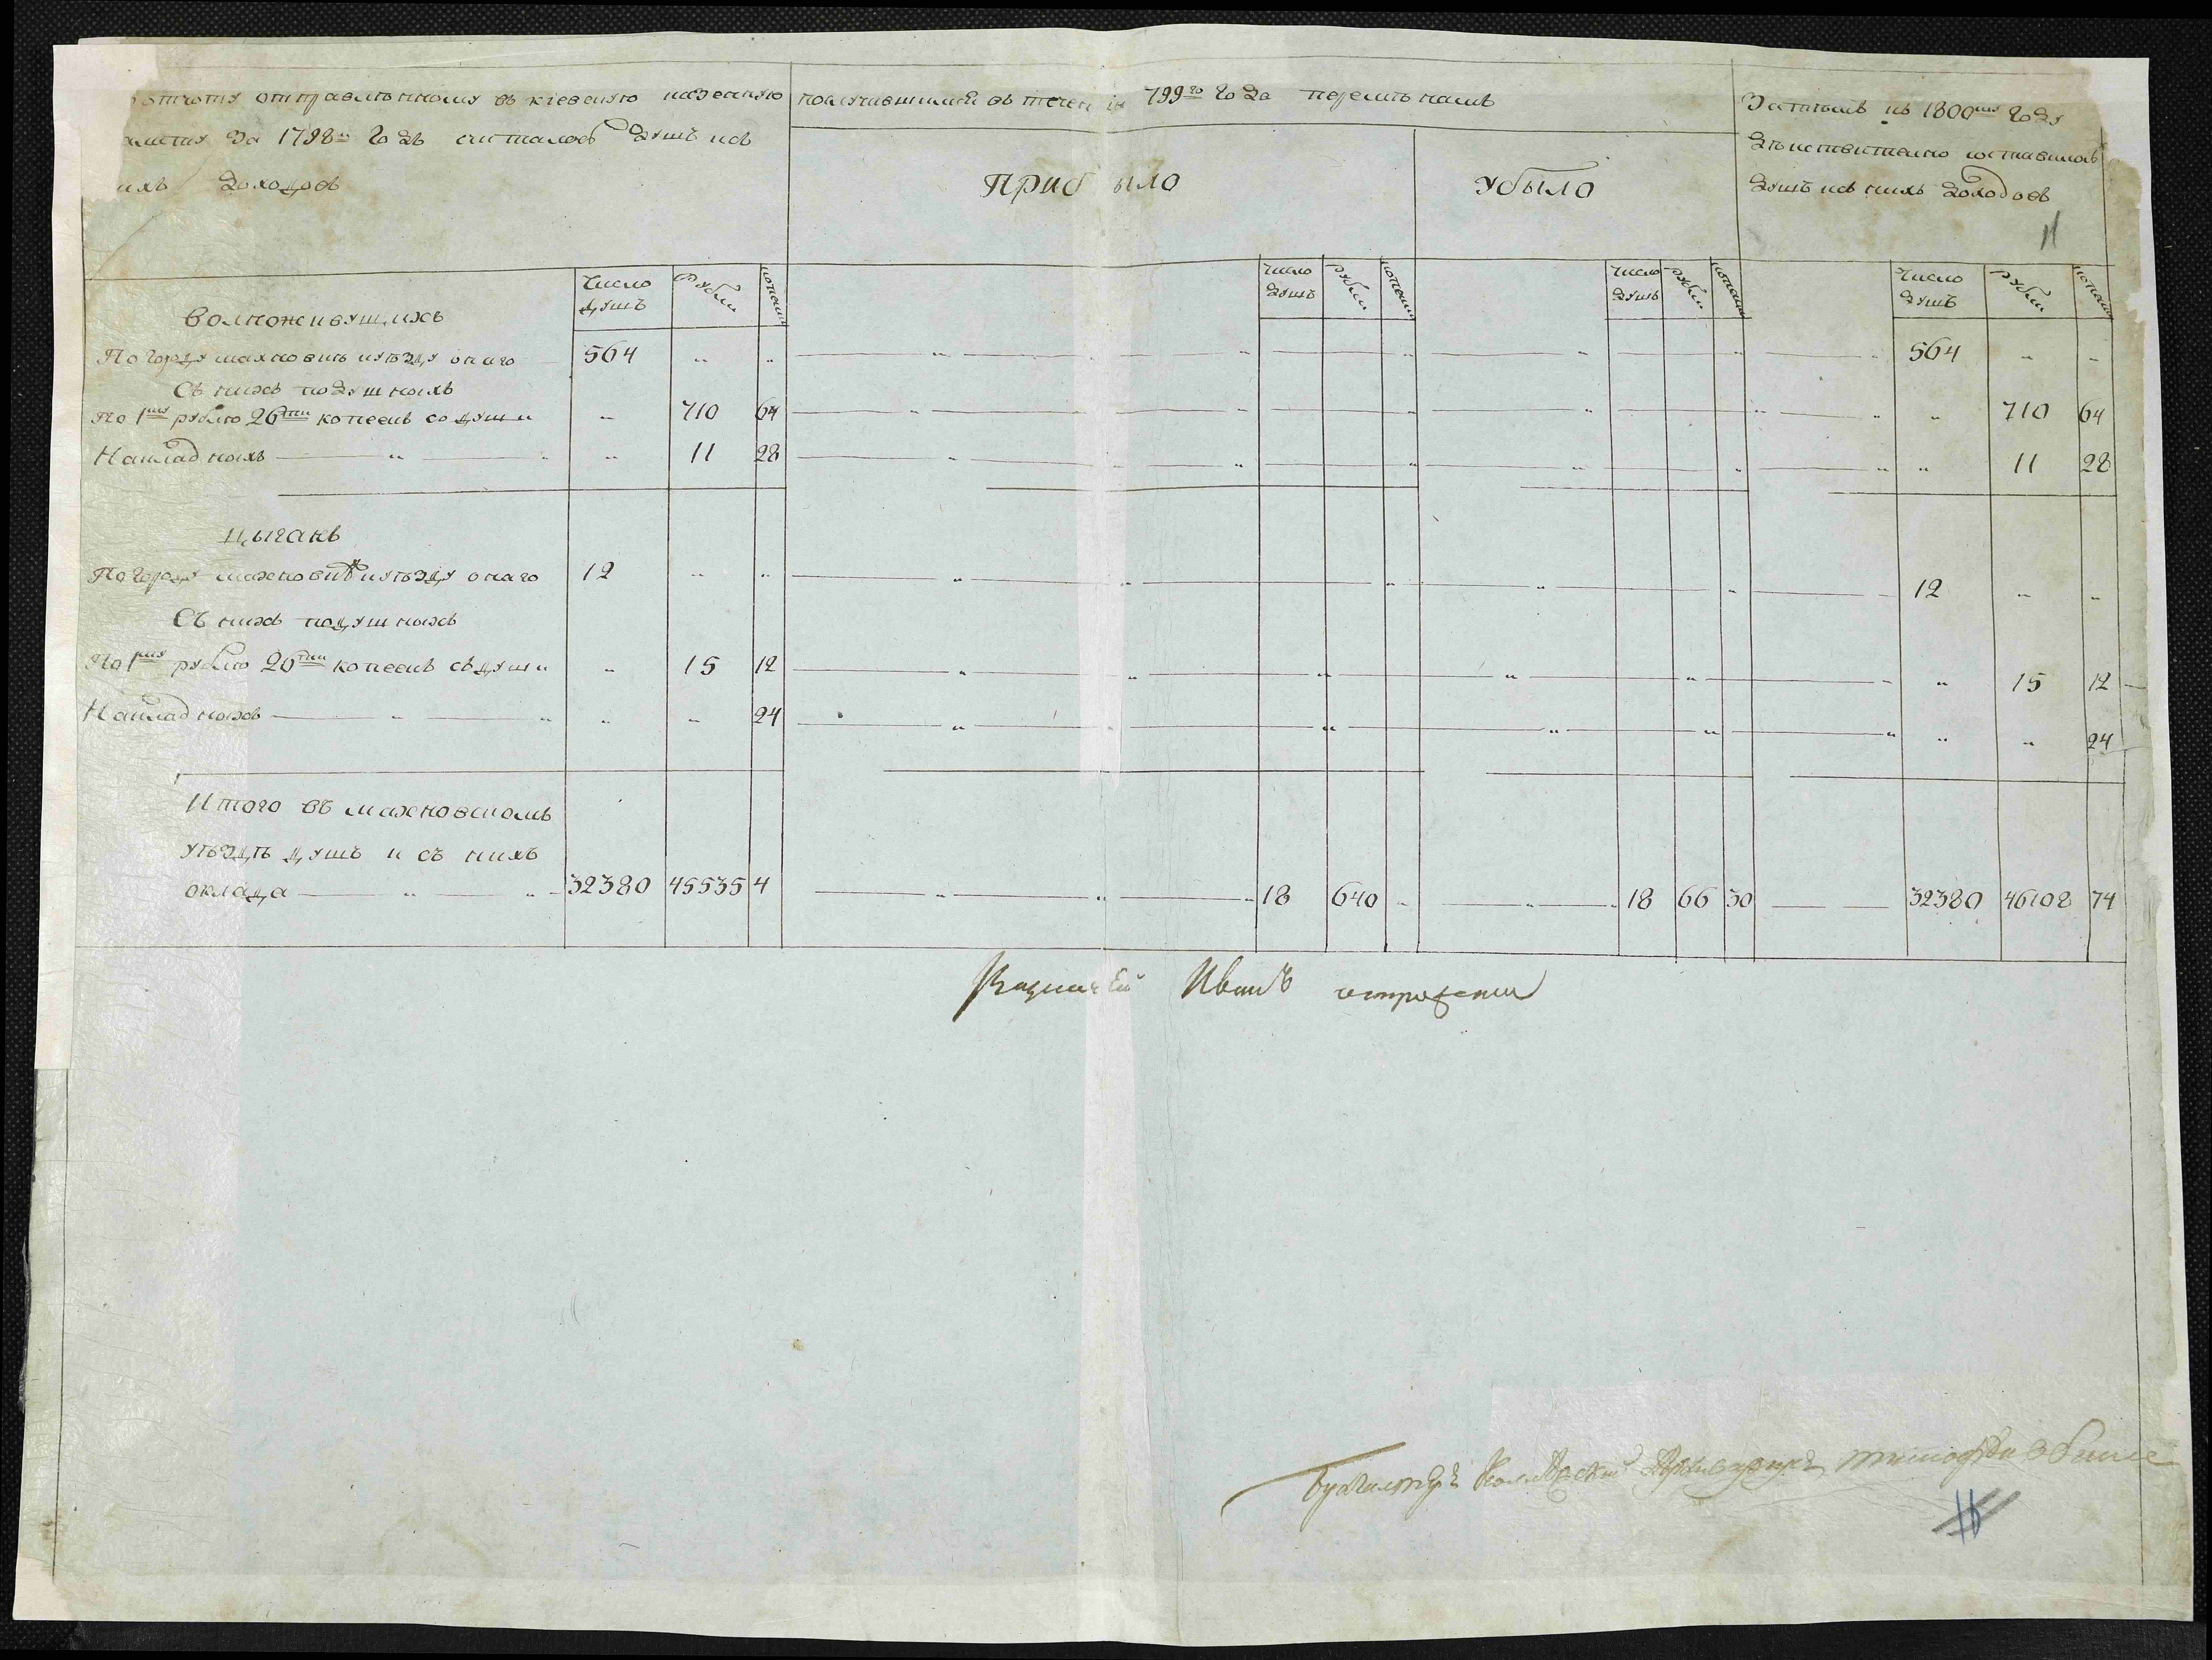 отчоту отправленному въ кіевскую казенную
За 1798й Годъ считалось душъ исъ
нихъ Доходовъ
получившимся въ теченіи 799го Года перемѣнамъ
Затѣмъ къ 1800му Году
дѣйствительно составилось
душъ исъ нихъ Доходовъ
Прибыло
Убыло
11
Число душъ Рубли копейки
Число душъ рубли копейки
Число душъ рубли копейки
Число душъ рубли копейки
Волноживущихъ
По Городу махновкѣ иуѣзду онаго 564 „ „ 564 „ „
Съ нихъ подушныхъ
По 1му рублю 26ти копеекъ со души „ 710 64 „ 710 64
Накладныхъ „ 11 28 „ 11 28
цыганъ
По Городу махновкѣ иуѣзду онаго 12 „ „ 12 „ „
Съ нихъ подушныхъ
По 1му рублю 26ти копеекъ съ души „ 15 12 „ 15 12
Накладныхъ „ „ 24 „ „ 24
Итого въ махновскомъ
уѣздѣ душъ и съ нихъ
оклада 32380 45535 4 18 640 „ 18 66 30 32380 46108 74
Казначей Иванъ
Бухгалтеръ Коллежский